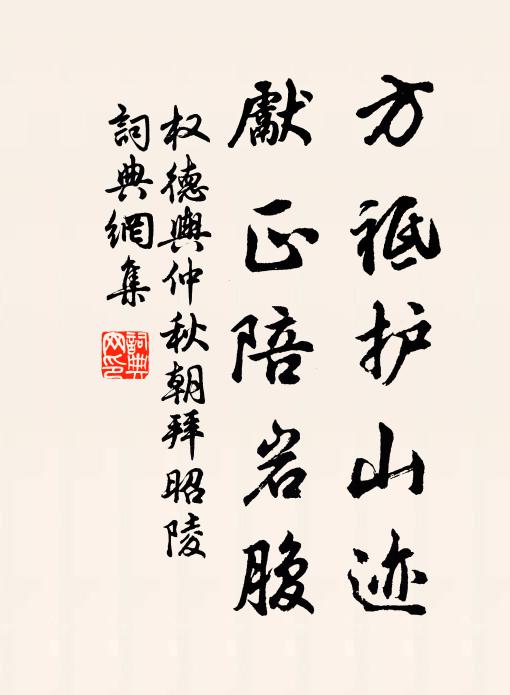 方祗护山迹
獻正陪岩腹
权德輿仲秋朝拜昭陵
詞典網集
詞典网印